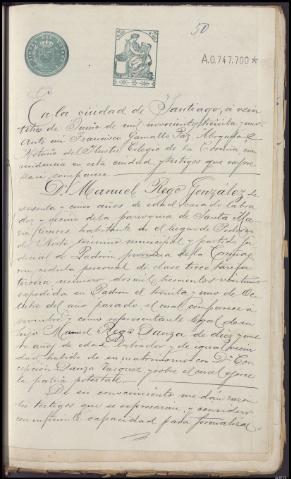 50
A.0.747.700*
En la ciudad de Santiago, a vein
de Junio de mil novecientos treinta y uno
Ante mí Francisco Gamallo Paz Abogado
Notario del Ilustre Colegio de la Coruña con
residencia en esta ciudad y testigos que expre
saré comparece
D. Manuel Rego González de
sesenta y cinco años de edad casado labra
dor y vecino de la parroquia de Santa Ma
habitante en el lugar de
término municipal y partido ju
dicial de Padrón provincia de la Coruña
con cédula personal de clase trece tarifa
tercera número
expedida en Padrón a treinta y uno de Oc
tubre del año pasado el cual comparece a
nombre y como representante legal de su
hijo Manuel Rego Danza de diez y
años de edad labrador y de igual vecin
dad habido de su matrimonio con Dª Con
cepción Danza Vazquez y sobre el cual ejerce
la patria potestad
De su conocimiento me dan razon
los testigos que se expresaran y considero
con suficiente capacidad para formalizar